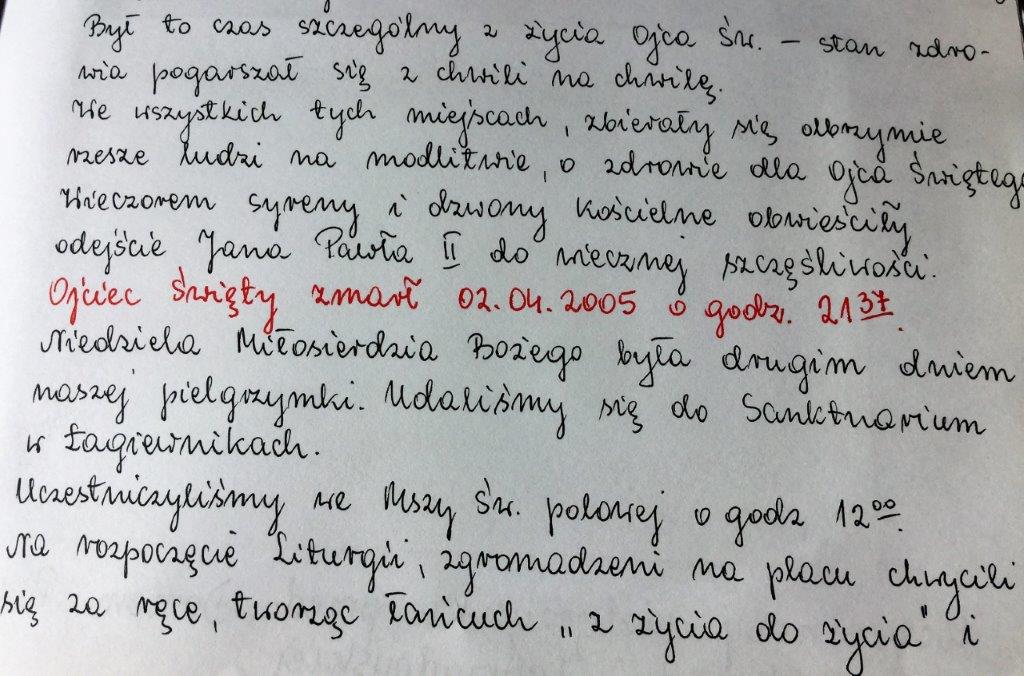 Był to czas szczególny z życia Ojca Św. – stan zdro-
wia pogarszał się z chwili na chwilę.
We wszystkich tych miejscach, zbierały się olbrzymie
rzesze ludzi na modlitwie, o zdrowie dla Ojca Świętego
Wieczorem syreny i dzwony kościelne obwieściły
odejście Jana Pawła II do wiecznej szczęśliwości.
Ojciec Święty zmarł 02.04.2005 o godz. 21³⁷.
Niedziela Miłosierdzia Bożego była drugim dniem
naszej pielgrzymki. Udaliśmy się do Sanktuarium
w Łagiewnikach.
Uczestniczyliśmy we Mszy Św. polowej o godz 12⁰⁰.
Na rozpoczęcie Liturgii, zgromadzeni na placu chwycili
się za ręce, tworząc łańcuch „z życia do życia" i